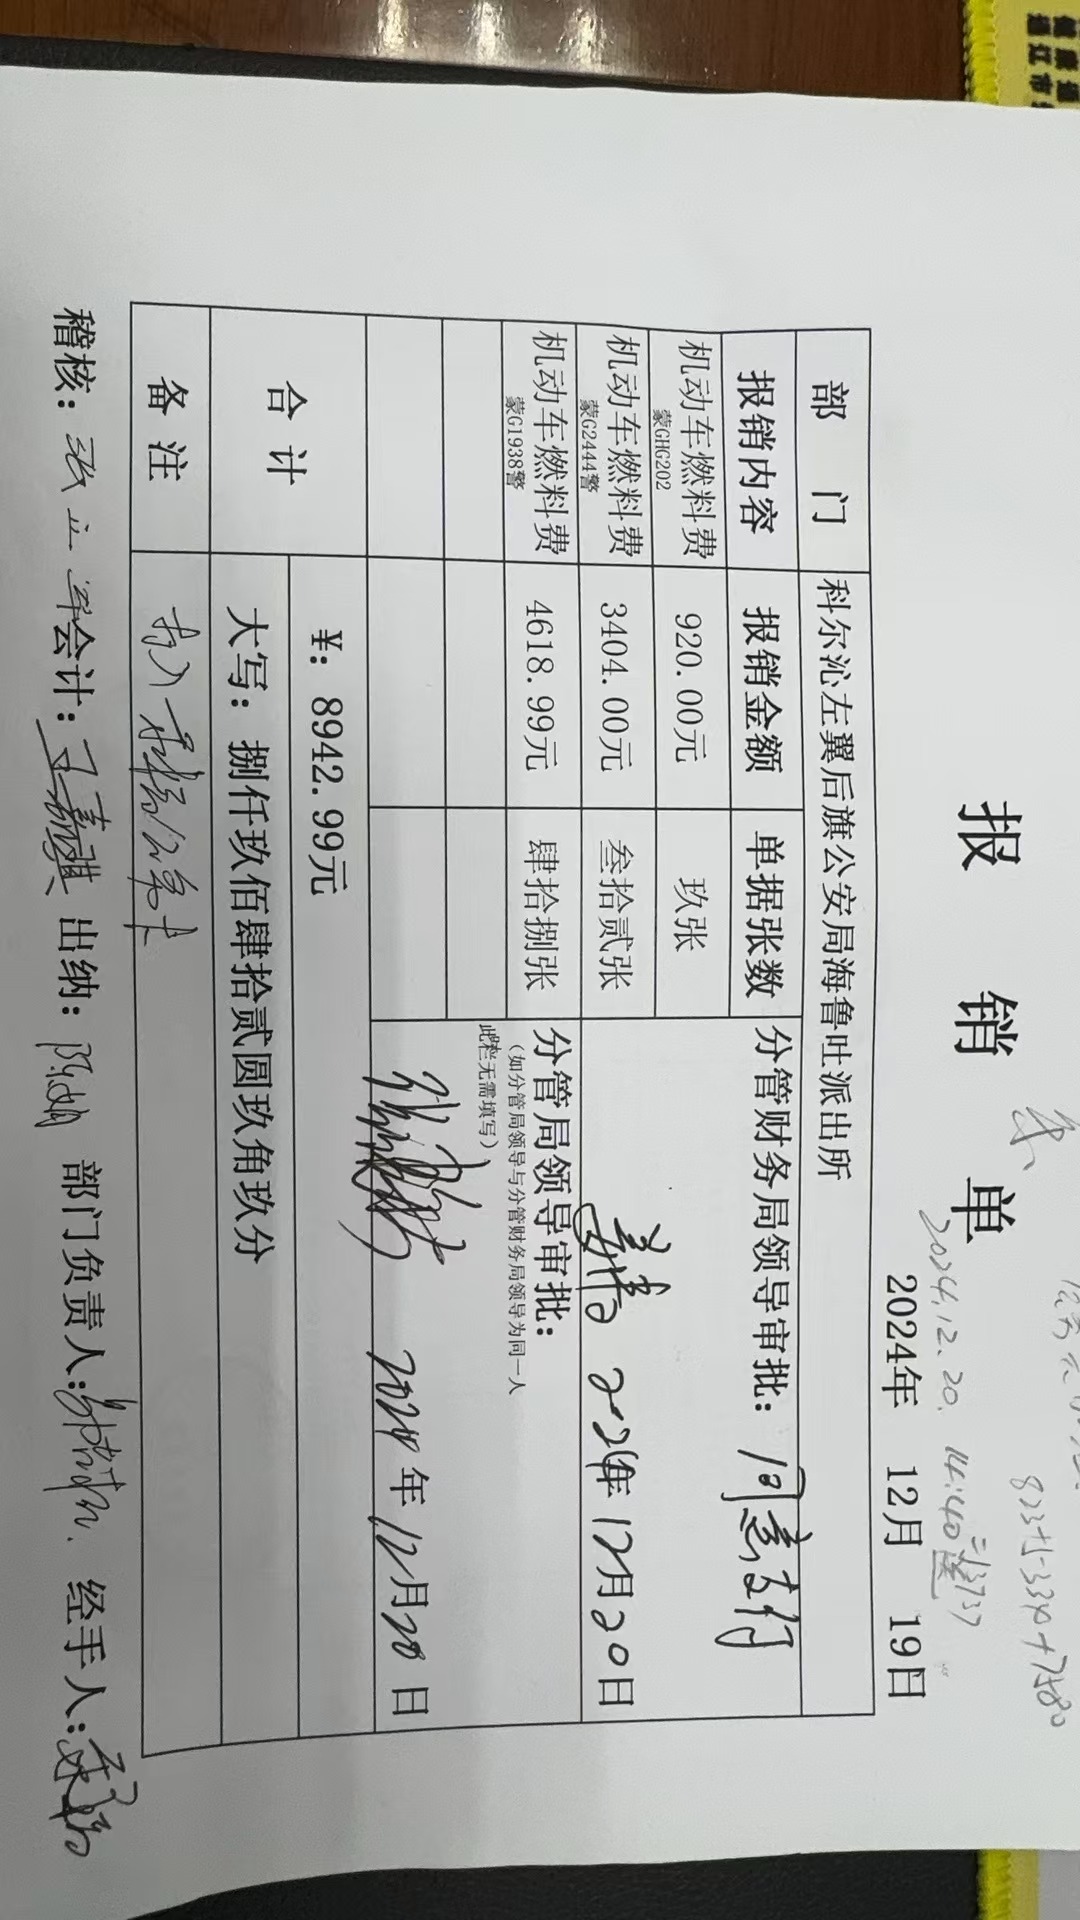 报 销 单
2024.12.20. 14:40
2024年 12月 19日
部 门 科尔沁左翼后旗公安局海鲁吐派出所
报销内容 报销金额 单据张数 分管财务局领导审批: 同意支付
机动车燃料费 920.00元 玖张
蒙GHG202
机动车燃料费 3404.00元 叁拾贰张 2024年12月20日
蒙G2444警
机动车燃料费 4618.99元 肆拾捌张 分管局领导审批:
蒙G1938警
(如分管局领导与分管财务局领导为同一人
此栏无需填写)
2024年12月20日
合 计 ¥: 8942.99元
大写: 捌仟玖佰肆拾贰圆玖角玖分
备 注
稽核: 张立军 会计: 出纳: 部门负责人: 经手人: